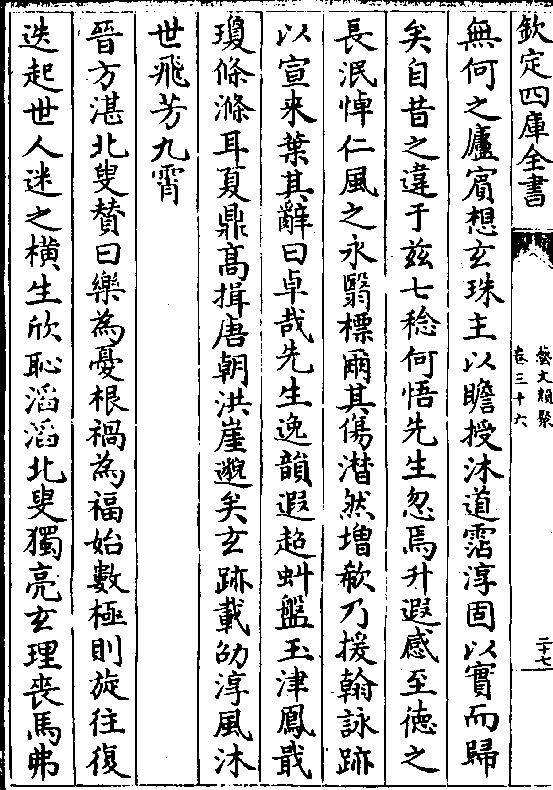 欽定四庫全書
藝文類聚
卷三十六
二十七
無何之廬賓想玄珠主以瞻授沐道霑淳固以實而歸
矣自昔之違于兹七稔何悟先生忽焉升遐感至德之
長泯悼仁風之永翳標爾其傷潸然增欷乃援翰詠跡
以宣来葉其辭曰卓哉先生逸韻遐超虯盤玉津鳳戢
瓊條滌耳夏鼎髙揖唐朝洪崖邈矣玄跡載劭淳風沐
世飛芳九霄
晉方湛北叟賛曰樂為憂根禍為福始數極則旋往復
迭起世人迷之橫生欣恥滔滔北叟獨亮玄理喪馬弗